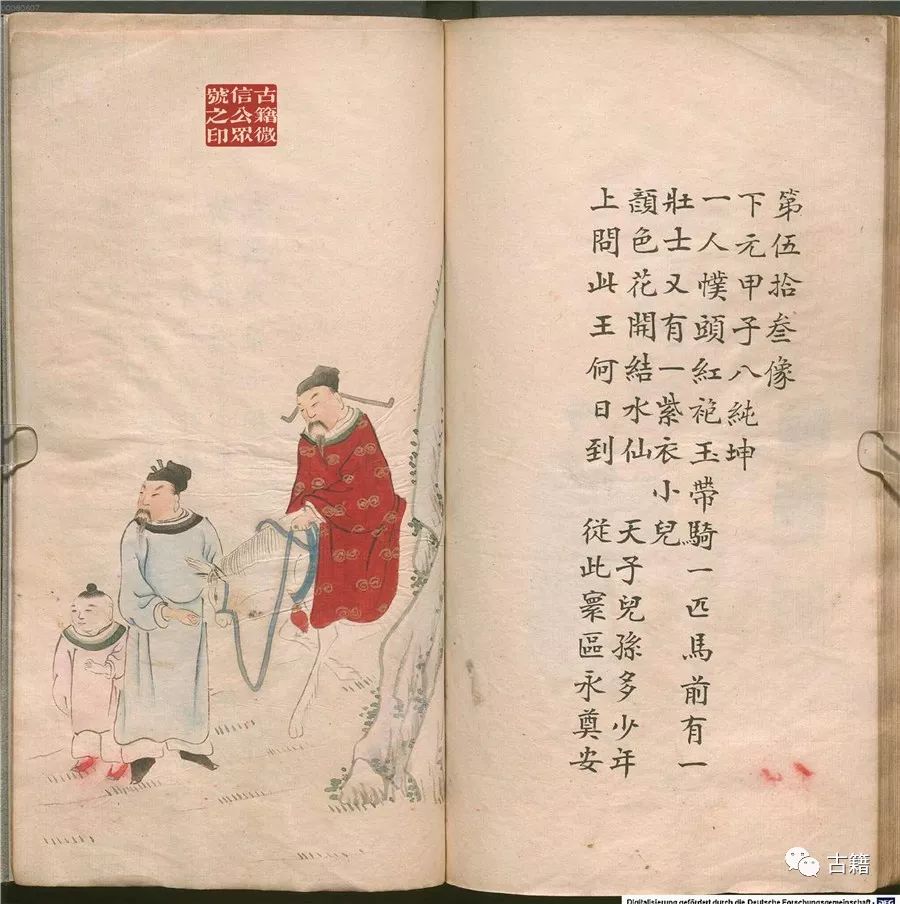 古籍微
信公眾
號之印
第伍拾叁像
下元甲子八純坤
一人幞頭紅袍玉帶騎一匹馬前有一
壯士又有一紫衣小兒
顏色花開結水仙 天子兒孫多少年
上問此王何日到 從此寰區永奠安
古籍
Digitalisierung gefördert durch die Deutsche Forschungsgemeinschaft - DFG